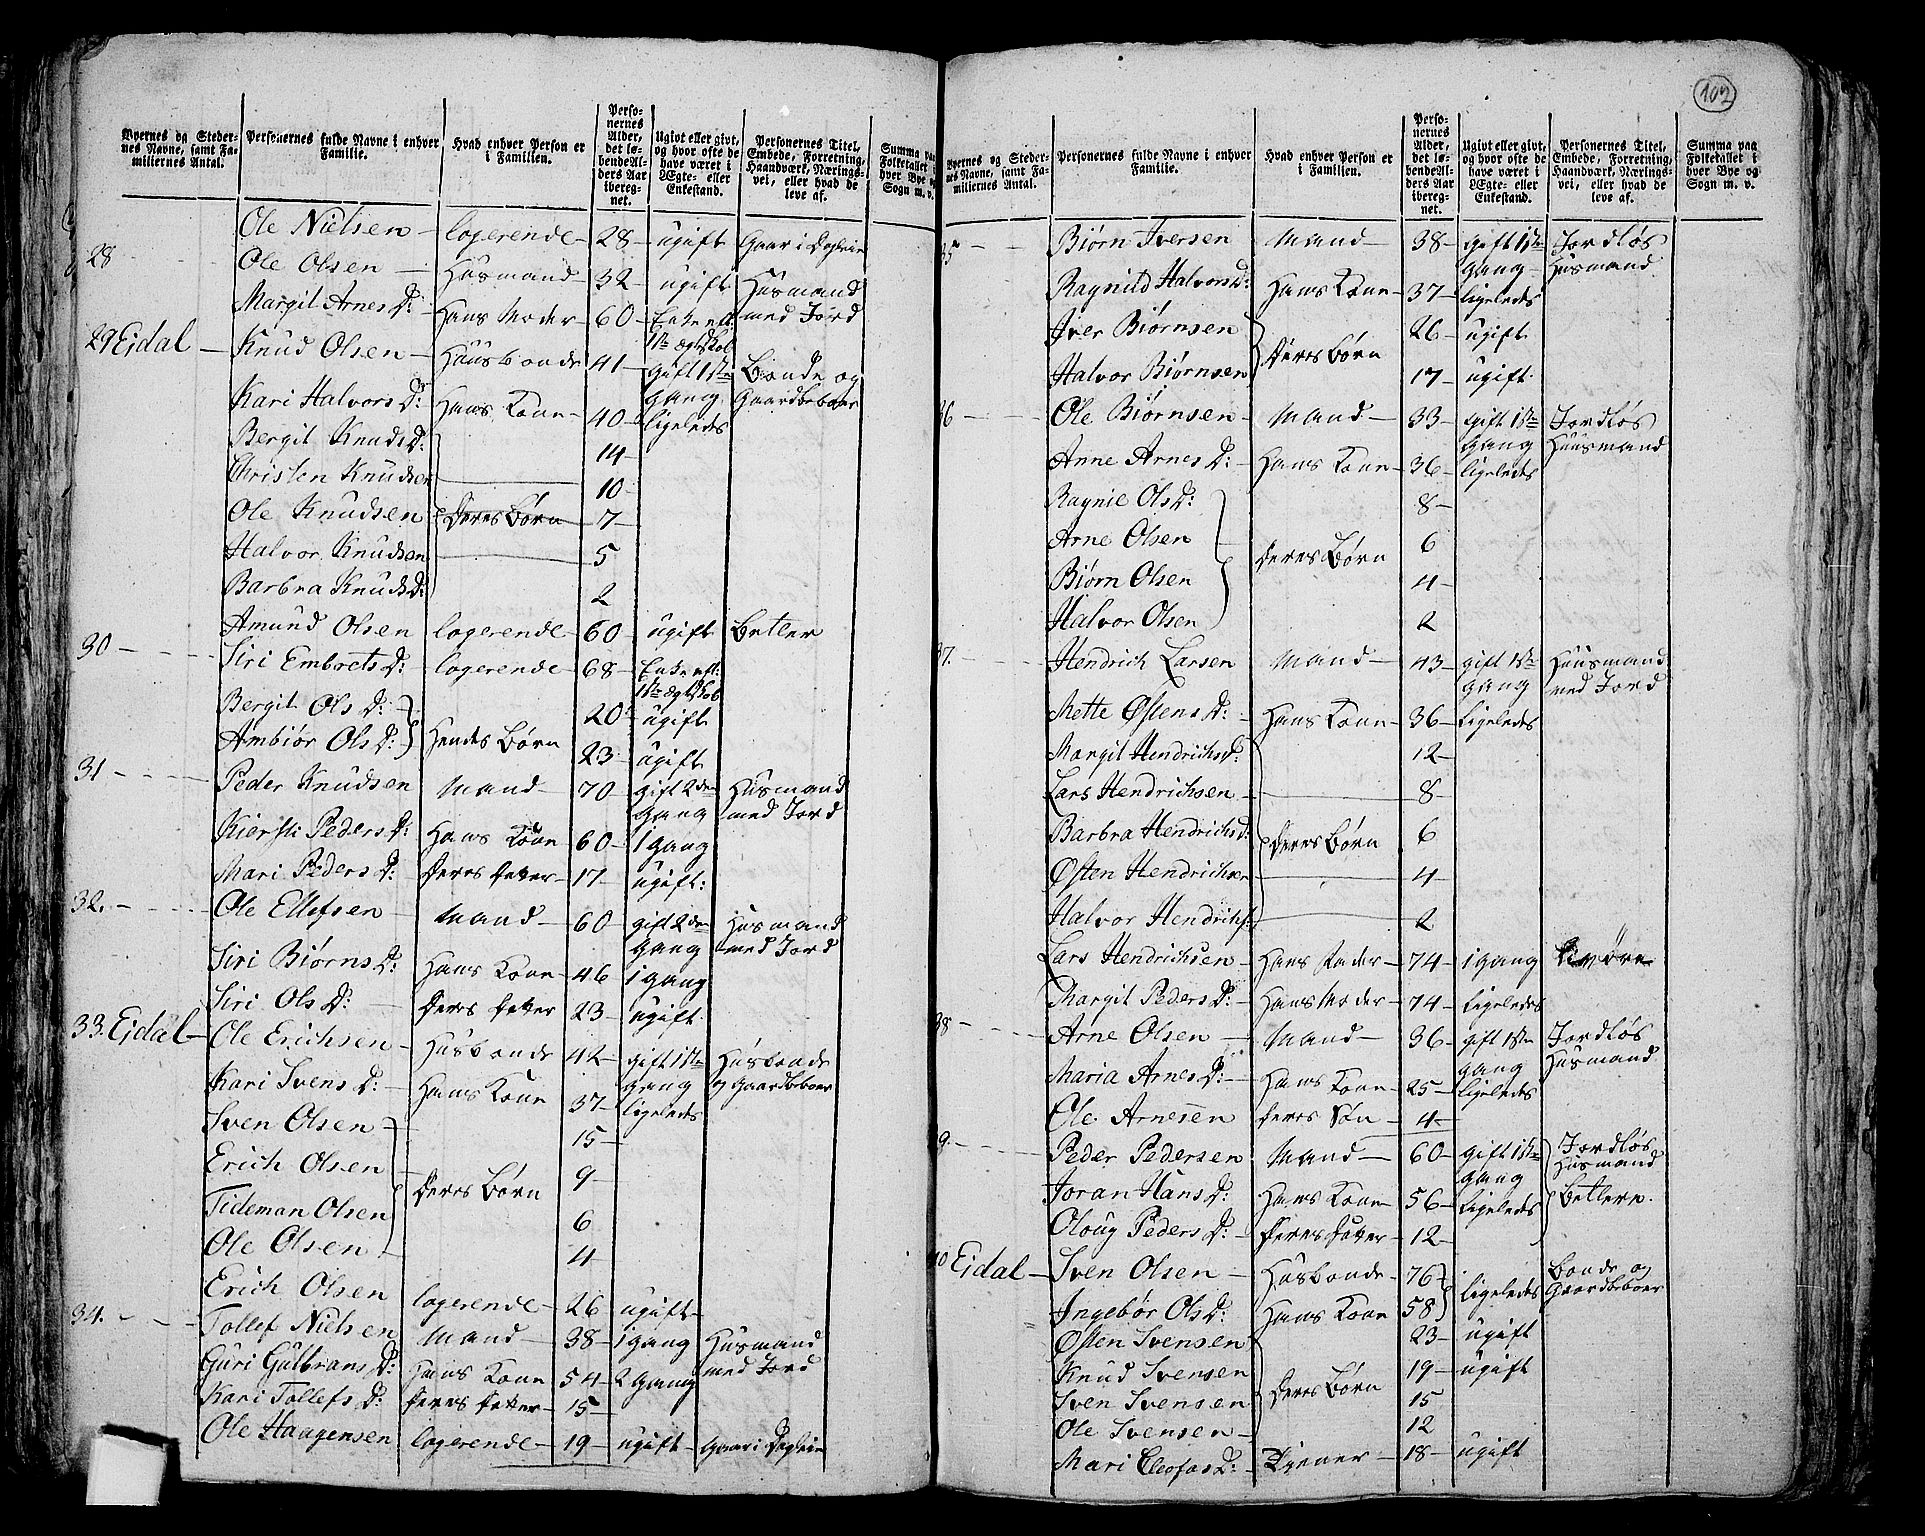 102
Byernes og Stedernes Navne, samt Familiernes Antal. | Personernes fulde Navne i enhver Familie. | Hvad enhver Person er i Familien. | Personernes Alder, det løbende Alders Aar iberegnet. | Ugivt eller givt, og hvor ofte de have været i Ægte- eller Enkestand. | Personernes Titel, Embede, Forretning, Haandværk, Næringsvei, eller hvad de leve af. | Summa paa Folketallet i hver Bye og Sogn m. v.
Ole Nielsen – logerende – 28 – ugift Gaar i Dagleie
28 Ole Olsen – Husmand – 32 – ugift Husmand med Jord
Margit Arnes D: – Hans Moder – 60 – Enke eft: 1ste ægtskab
29 Eidal – Knud Olsen – Huusbonde 41 – gift 1ste gang Bonde og Gaardbeboer
Kari Halvors D: Hans Kone – 40 – ligeledes
Bergit Knuds D: 14 –
Christen Knudsen 10 –
Ole Knudsen Deres Børn 7 –
Halvor Knudsen 5
Barbra Knuds D: 2
Amund Olsen logerende – 60 – ugift Betler
30 – Siri Embrets D: – logerende – 68 – Enke eft: 1ste ægtskab
Bergit Ols D: 20 ugift
Ambiør Ols D: Hendes Børn 23 – ugift
31 – Peder Knudsen Mand – 70 – gift 2den gang Husmand med Jord
Kiersti Peders D: Hans Kone 60 – 1 gang
Mari Peders D: Deres Datter – 17 – ugift:
32. – Ole Ellefsen – Mand – 60 gift 2den gang Husmand med Jord
Siri Biørns D: Hans Kone – 46 1 gang
Siri Ols D: – Deres Datter 23 – ugift
33. Eidal – Ole Erichsen – Husbonde 42 – gift 1ste gang Husbonde og Gaardbeboer
Kari Svens D: – Hans Kone 37 – ligeledes
Sven Olsen – 15 –
Erich Olsen – 9 –
Tideman Olsen Deres Børn 6
Ole Olsen – 4
Erich Olsen logerende – 26 ugift –
34. – Tollef Nielsen Mand – 38 – 1 gang Husmand med Jord
Guri Gulbrans D: Hans Kone 54 – 2 gang
Kari Tollefs D: Deres Datter – 15 –
Ole Haagensen logerende – 19 – ugift – Gaar i Dagleie
Byernes og Stedernes Navne, samt Familiernes Antal. | Personernes fulde Navne i enhver Familie. | Hvad enhver Person er i Familien. | Personernes Alder, det løbende Alders Aar iberegnet. | Ugivt eller givt, og hvor ofte de have været i Ægte- eller Enkestand. | Personernes Titel, Embede, Forretning, Haandværk, Næringsvei, eller hvad de leve af. | Summa paa Folketallet i hver Bye og Sogn m. v.
35 – Biørn Iversen Mand – 38 – gift 1ste gang – Jordløs Husmand
Ragnild Halvors D: Hans Kone – 37 – ligeledes
Iver Biørnsen 26 – ugift
Halvor Biørnsen Deres Børn 17 – ugift
36 – Ole Biørnsen – Mand – 33 – gift 1ste gang Jordløs Huusmand
Anne Arnes D: – Hans Kone – 36 – ligeledes
Ragnil Ols D: 8 –
Arne Olsen 6
Biørn Olsen Deres Børn 4 –
Halvor Olsen 2
37. – Hendrich Larsen Mand – 43 – gift 1ste gang Huusmand med Jord
Mette Østens D: – Hans Kone – 36 – ligeledes
Margit Hendrichs D: 12 –
Lars Hendrichsen – 8 –
Barbra Hendrichs D: Deres Børn 6
Østen Hendrichsen 4 –
Halvor Hendrichs: 2
Lars Hendrichsen – Hans Fader – 74 – 1 gang
Margit Peders D: – Hans Moder – 74 – ligeledes
38 – Arne Olsen – Mand – 36 – gift 1ste gang Jordløs Husmand
Maria Arnes D: – Hans Kone – 25 – ligeledes
Ole Arnesen Deres Søn 4 –
9. – Peder Pedersen Mand – 60 – gift 1ste gang Jordløs Husmand
Joran Hans D: Hans Kone – 56 – ligeledes Betlere.
Oloug Peders D: – Deres Datter – 12 –
40 Eidal – Sven Olsen – Husbonde – 76 – ligeledes Bonde og Gaardbeboer
Ingebør Ols D: – Hans Kone 58
Østen Svensen 23 – ugift
Knud Svensen 19 – ugift
Sven Svensen Deres Børn 15
Ole Svensen – 12
Mari Cleofas D: – Tjener – 18 – ugift